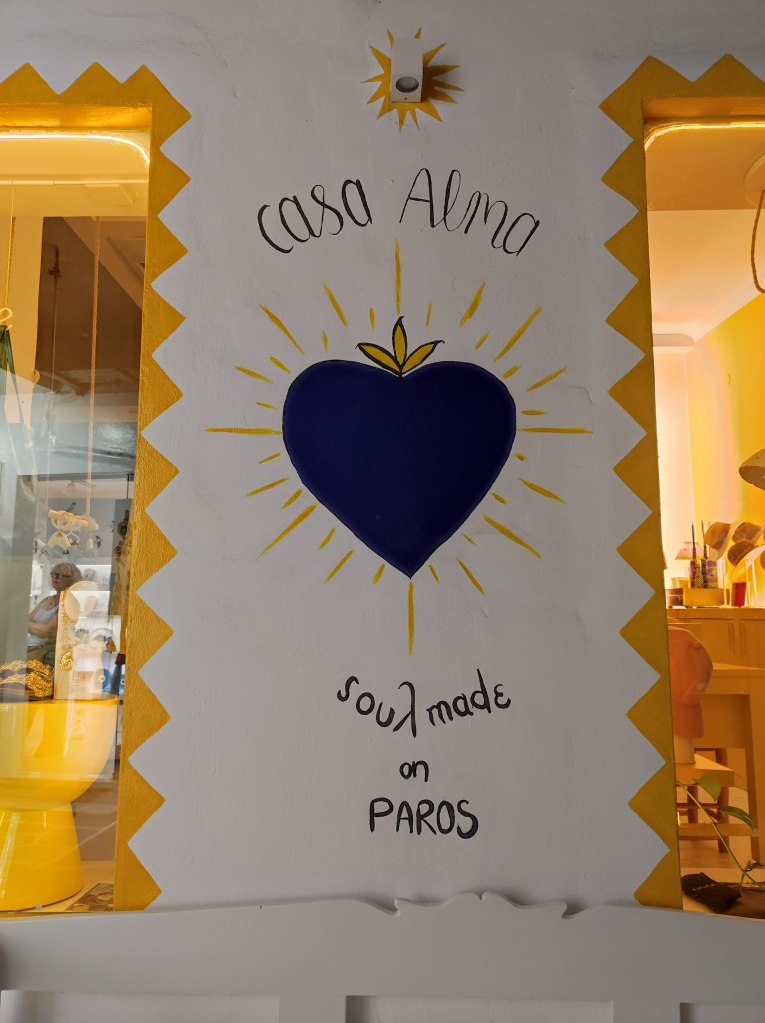 casa Alma
souλ madε
on
PAROS